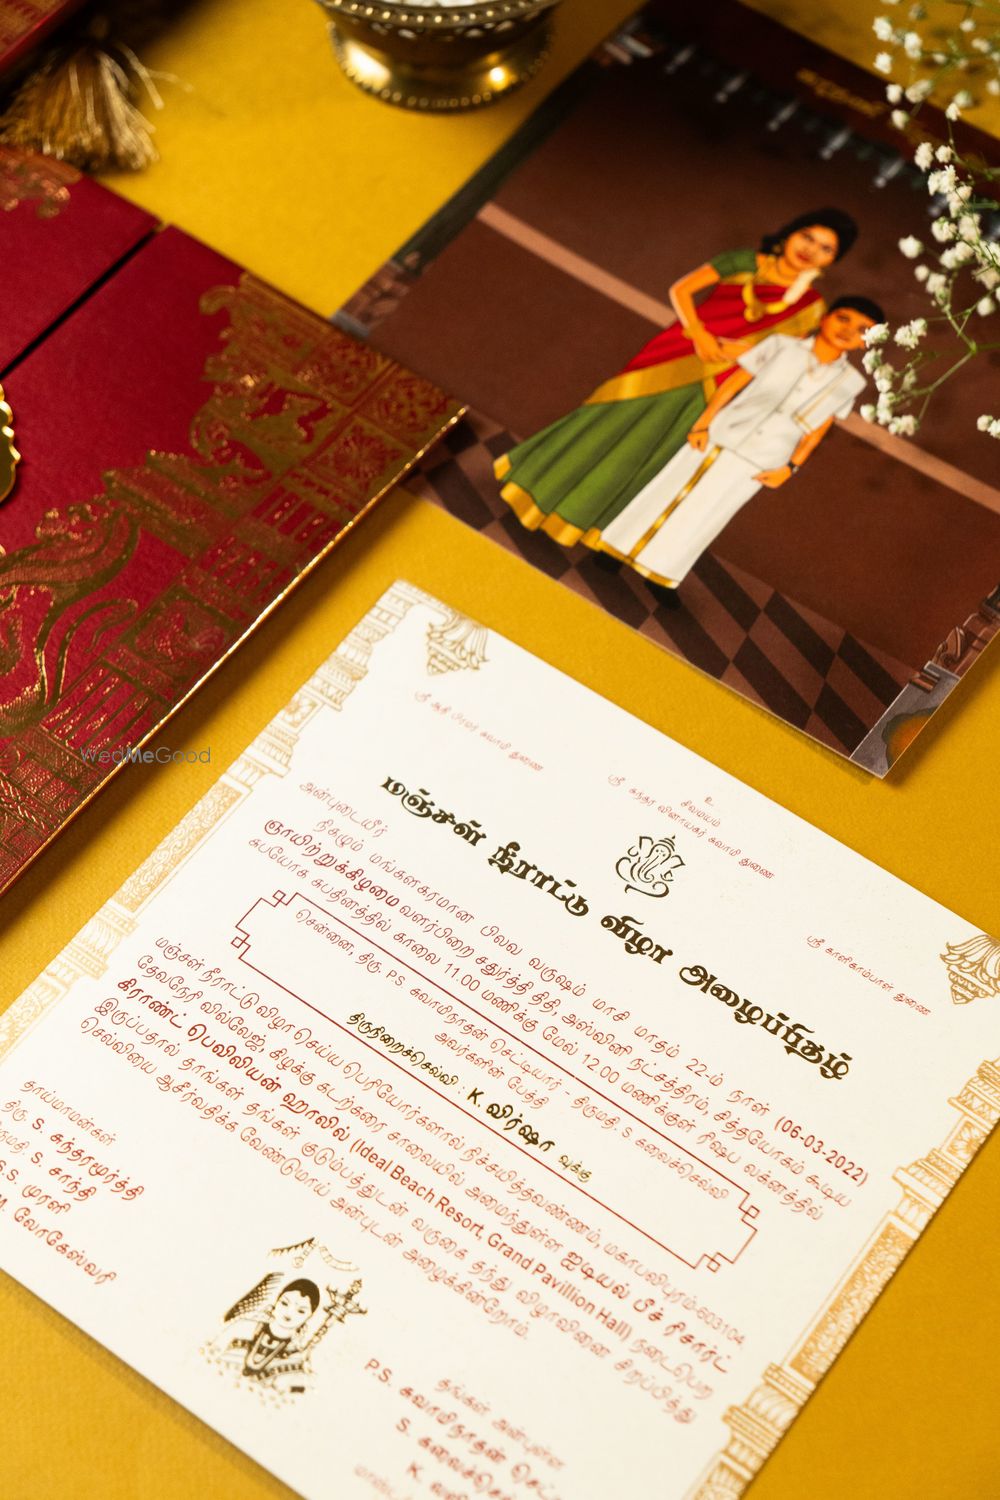 உ
சிவமயம்
ஸ்ரீ ஆதி பிரமர் சுவாமி துணை
ஸ்ரீ சுந்தர விநாயகர் சுவாமி துணை
ஸ்ரீ காளிகாம்பாள் துணை
மஞ்சள் நீராட்டு விழா அழைப்பிதழ்
அன்புடையீர்
நிகழும் மங்களகரமான பிலவ வருஷம் மாசி மாதம் 22-ம் நாள் (06-03-2022)
ஞாயிற்றுக்கிழமை வளர்பிறை சதுர்த்தி திதி, அஸ்வினி நட்சத்திரம், சித்தயோகம் கூடிய
சுபயோக சுபதினத்தில் காலை 11.00 மணிக்கு மேல் 12.00 மணிக்குள் ரிஷப லக்னத்தில்
சென்னை, திரு. P.S. சுவாமிநாதன் செட்டியார் - திருமதி. S. கலைச்செல்வி
அவர்களின் பேத்தி
திருநிறைச்செல்வி : K. விர்ஷா வுக்கு
மஞ்சள் நீராட்டுவிழா செய்ய பெரியோர்களால் நிச்சயித்தவண்ணம், மகாபலிபுரம்-603104,
தேவநேரி வில்லேஜ், கிழக்கு கடற்கரை சாலையில் அமைந்துள்ள ஐடியல் பீச் ரிசார்ட்
கிராண்ட் பெவிலியன் ஹாலில் (Ideal Beach Resort, Grand Pavillion Hall) நடைபெற
இருப்பதால் தாங்கள் தங்கள் குடும்பத்துடன் வருகை தந்து விழாவினை சிறப்பித்து
செல்வியை ஆசீர்வதிக்க வேண்டுமாய் அன்புடன் அழைக்கின்றோம்.
தாய்மாமன்கள்
திரு. S. சுந்தரமூர்த்தி
S. சாந்தி
S. முரளி
M. லோகேஸ்வரி
தங்கள் அன்புள்ள
P.S. சுவாமிநாதன்
S.
K.
WedMeGood